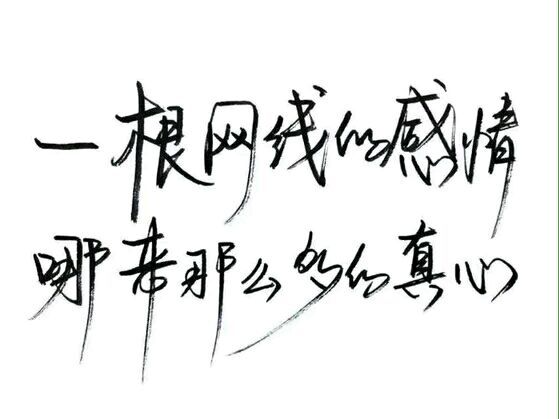 一根网线的感情
哪来那么多的真心